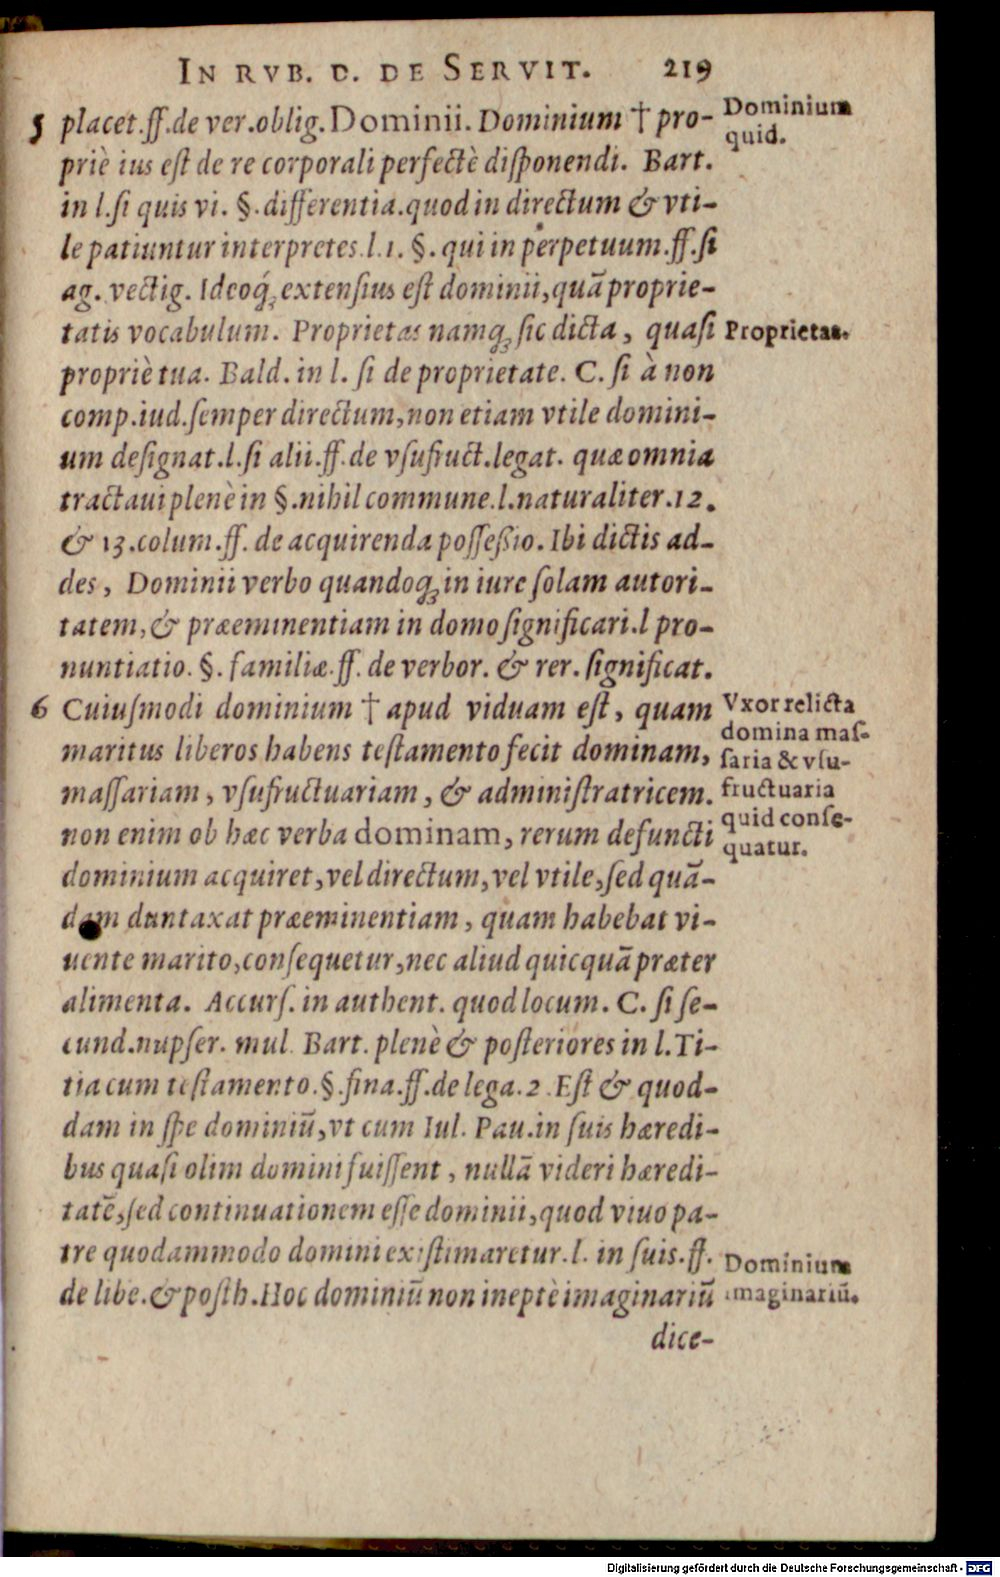 IN RVB. D. DE SERVIT. 219
5 placet.ff.de ver.oblig. Dominii. Dominium † pro-
Dominium
quid.
priè ius est de re corporali perfectè disponendi. Bart.
in l.si quis vi. §.differentia.quod in directum & vti-
le patiuntur interpretes.l.1.§.qui in perpetuum.ff.si
ag. vectig. Ideoq́; extensius est dominii, quã proprie-
tatis vocabulum. Proprietas namq; sic dicta, quasi
Proprietas.
propriè tua. Bald. in l. si de proprietate. C. si à non
comp.iud.semper directum, non etiam vtile domini-
um designat.l.si alii.ff.de vsufruct.legat. quæ omnia
tractaui plenè in §.nihil commune.l.naturaliter.12.
& 13.colum.ff. de acquirenda possessio. Ibi dictis ad-
des, Dominii verbo quandoq; in iure solam autori-
tatem, & præeminentiam in domo significari.l pro-
nuntiatio. §. familiæ.ff. de verbor. & rer. significat.
6 Cuiusmodi dominium † apud viduam est, quam
Vxor relicta
domina mas-
saria & vsu-
fructuaria
quid conse-
quatur.
maritus liberos habens testamento fecit dominam,
massariam, vsufructuariam, & administratricem.
non enim ob hæc verba dominam, rerum defuncti
dominium acquiret, vel directum, vel vtile, sed quã-
dam duntaxat præeminentiam, quam habebat vi-
uente marito, consequetur, nec aliud quicquã præter
alimenta. Accurs. in authent. quod locum. C. si se-
cund.nupser. mul. Bart. plenè & posteriores in l.Ti-
tia cum testamento.§.fina.ff.de lega.2. Est & quod-
dam in spe dominiũ, vt cum Iul. Pau.in suis hæredi-
bus quasi olim domini fuissent, nullã videri hæredi-
tatẽ, sed continuationem esse dominii, quod viuo pa-
tre quodammodo domini existimaretur.l. in suis.ff.
de libe.& posth. Hoc dominiũ non ineptè imaginariũ
Dominium
imaginariũ.
dice-
Digitalisierung gefördert durch die Deutsche Forschungsgemeinschaft - DFG